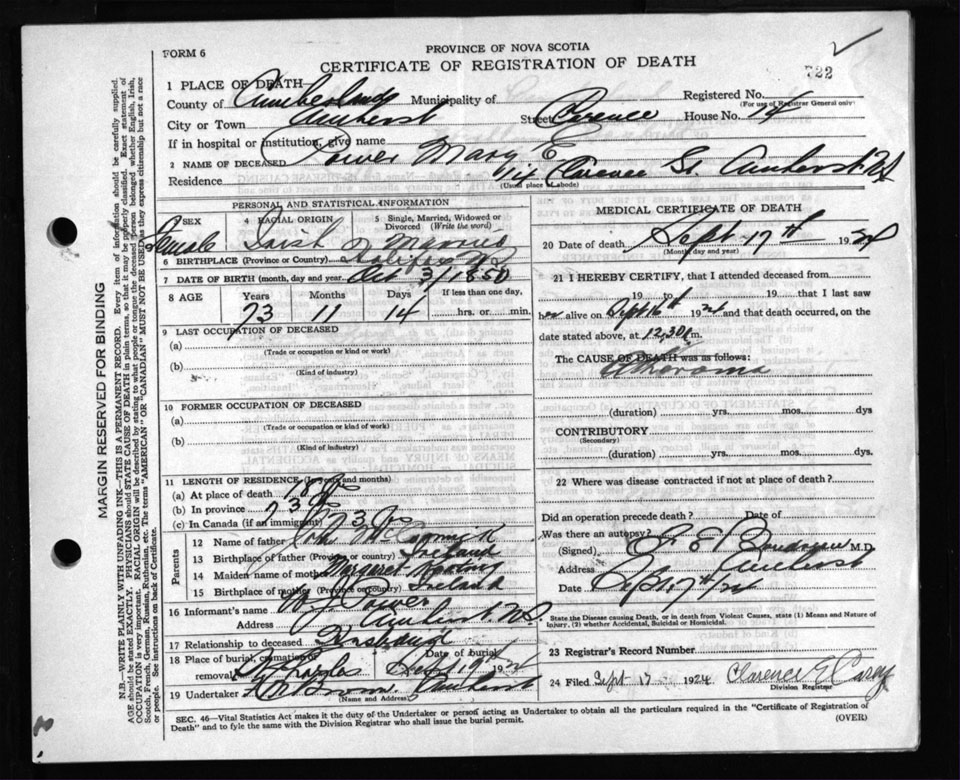 FORM 6
PROVINCE OF NOVA SCOTIA
CERTIFICATE OF REGISTRATION OF DEATH
722
1 PLACE OF DEATH—
County of Cumberland Municipality of Registered No.
(For use of Registrar General only)
City or Town Amherst Street Clarence House No. 14
If in hospital or institution, give name
2 NAME OF DECEASED Power Mary E
Residence 14 Clarence St. Amherst NS
(Usual place of abode)
PERSONAL AND STATISTICAL INFORMATION
3 SEX 4 RACIAL ORIGIN 5 Single, Married, Widowed or Divorced (Write the word)
Female Irish Married
6 BIRTHPLACE (Province or Country) Halifax NS
7 DATE OF BIRTH (month, day and year) Oct 3/1850
8 AGE Years Months Days If less than one day,
73 11 14 hrs. or min.
9 LAST OCCUPATION OF DECEASED
(a)
(Trade or occupation or kind of work)
(b)
(Kind of industry)
10 FORMER OCCUPATION OF DECEASED
(a)
(Trade or occupation or kind of work)
(b)
(Kind of industry)
11 LENGTH OF RESIDENCE (In years and months)
(a) At place of death
(b) In province 73
(c) In Canada (if an immigrant) 73
Parents
12 Name of father John McCormick
13 Birthplace of father (Province or country) Ireland
14 Maiden name of mother Margaret
15 Birthplace of mother (Province or country) Ireland
16 Informant's name Power
Address Amherst NS
17 Relationship to deceased Husband
18 Place of burial, cremation or removal Date of burial
St Charles Sept 19 1924
19 Undertaker Brown Amherst
(Name and Address)
MEDICAL CERTIFICATE OF DEATH
20 Date of death Sept 17th 1924
(Month, day and year)
21 I HEREBY CERTIFY, that I attended deceased from
19 to 19 that I last saw
her alive on Sept 16th 1924 and that death occurred, on
date stated above, at 12.30 m.
The CAUSE OF DEATH was as follows:
Atheroma
(duration) yrs. mos. dys
CONTRIBUTORY
(Secondary)
(duration) yrs. mos. dys
22 Where was disease contracted if not at place of death?
Did an operation precede death? Date of
Was there an autopsy?
(Signed) M.D.
Address Amherst
Date Sept 17th/24
State the Disease causing Death, or in death from Violent Causes, state (1) Means and Nature of
Injury, (2) whether Accidental, Suicidal or Homicidal.
23 Registrar's Record Number
24 Filed Sept 17 1924 Clarence E Casey
Division Registrar
SEC. 46—Vital Statistics Act makes it the duty of the Undertaker or person acting as Undertaker to obtain all the particulars required in the "Certificate of Registration of
Death" and to fyle the same with the Division Registrar who shall issue the burial permit.
(OVER)
MARGIN RESERVED FOR BINDING
N.B.—WRITE PLAINLY WITH UNFADING INK—THIS IS A PERMANENT RECORD. Every item of information should be carefully supplied.
AGE should be stated EXACTLY. PHYSICIANS should STATE CAUSE OF DEATH in plain terms, so that it may be properly classified. Exact statement of
OCCUPATION is very important. RACIAL ORIGIN will be described by stating to what people or tongue the deceased person belonged whether English, Irish,
Scotch, French, German, Russian, Ruthenian, etc. The terms "AMERICAN" OR "CANADIAN" MUST NOT BE USED as they express citizenship but not a race
or people. See instructions on back of Certificate.